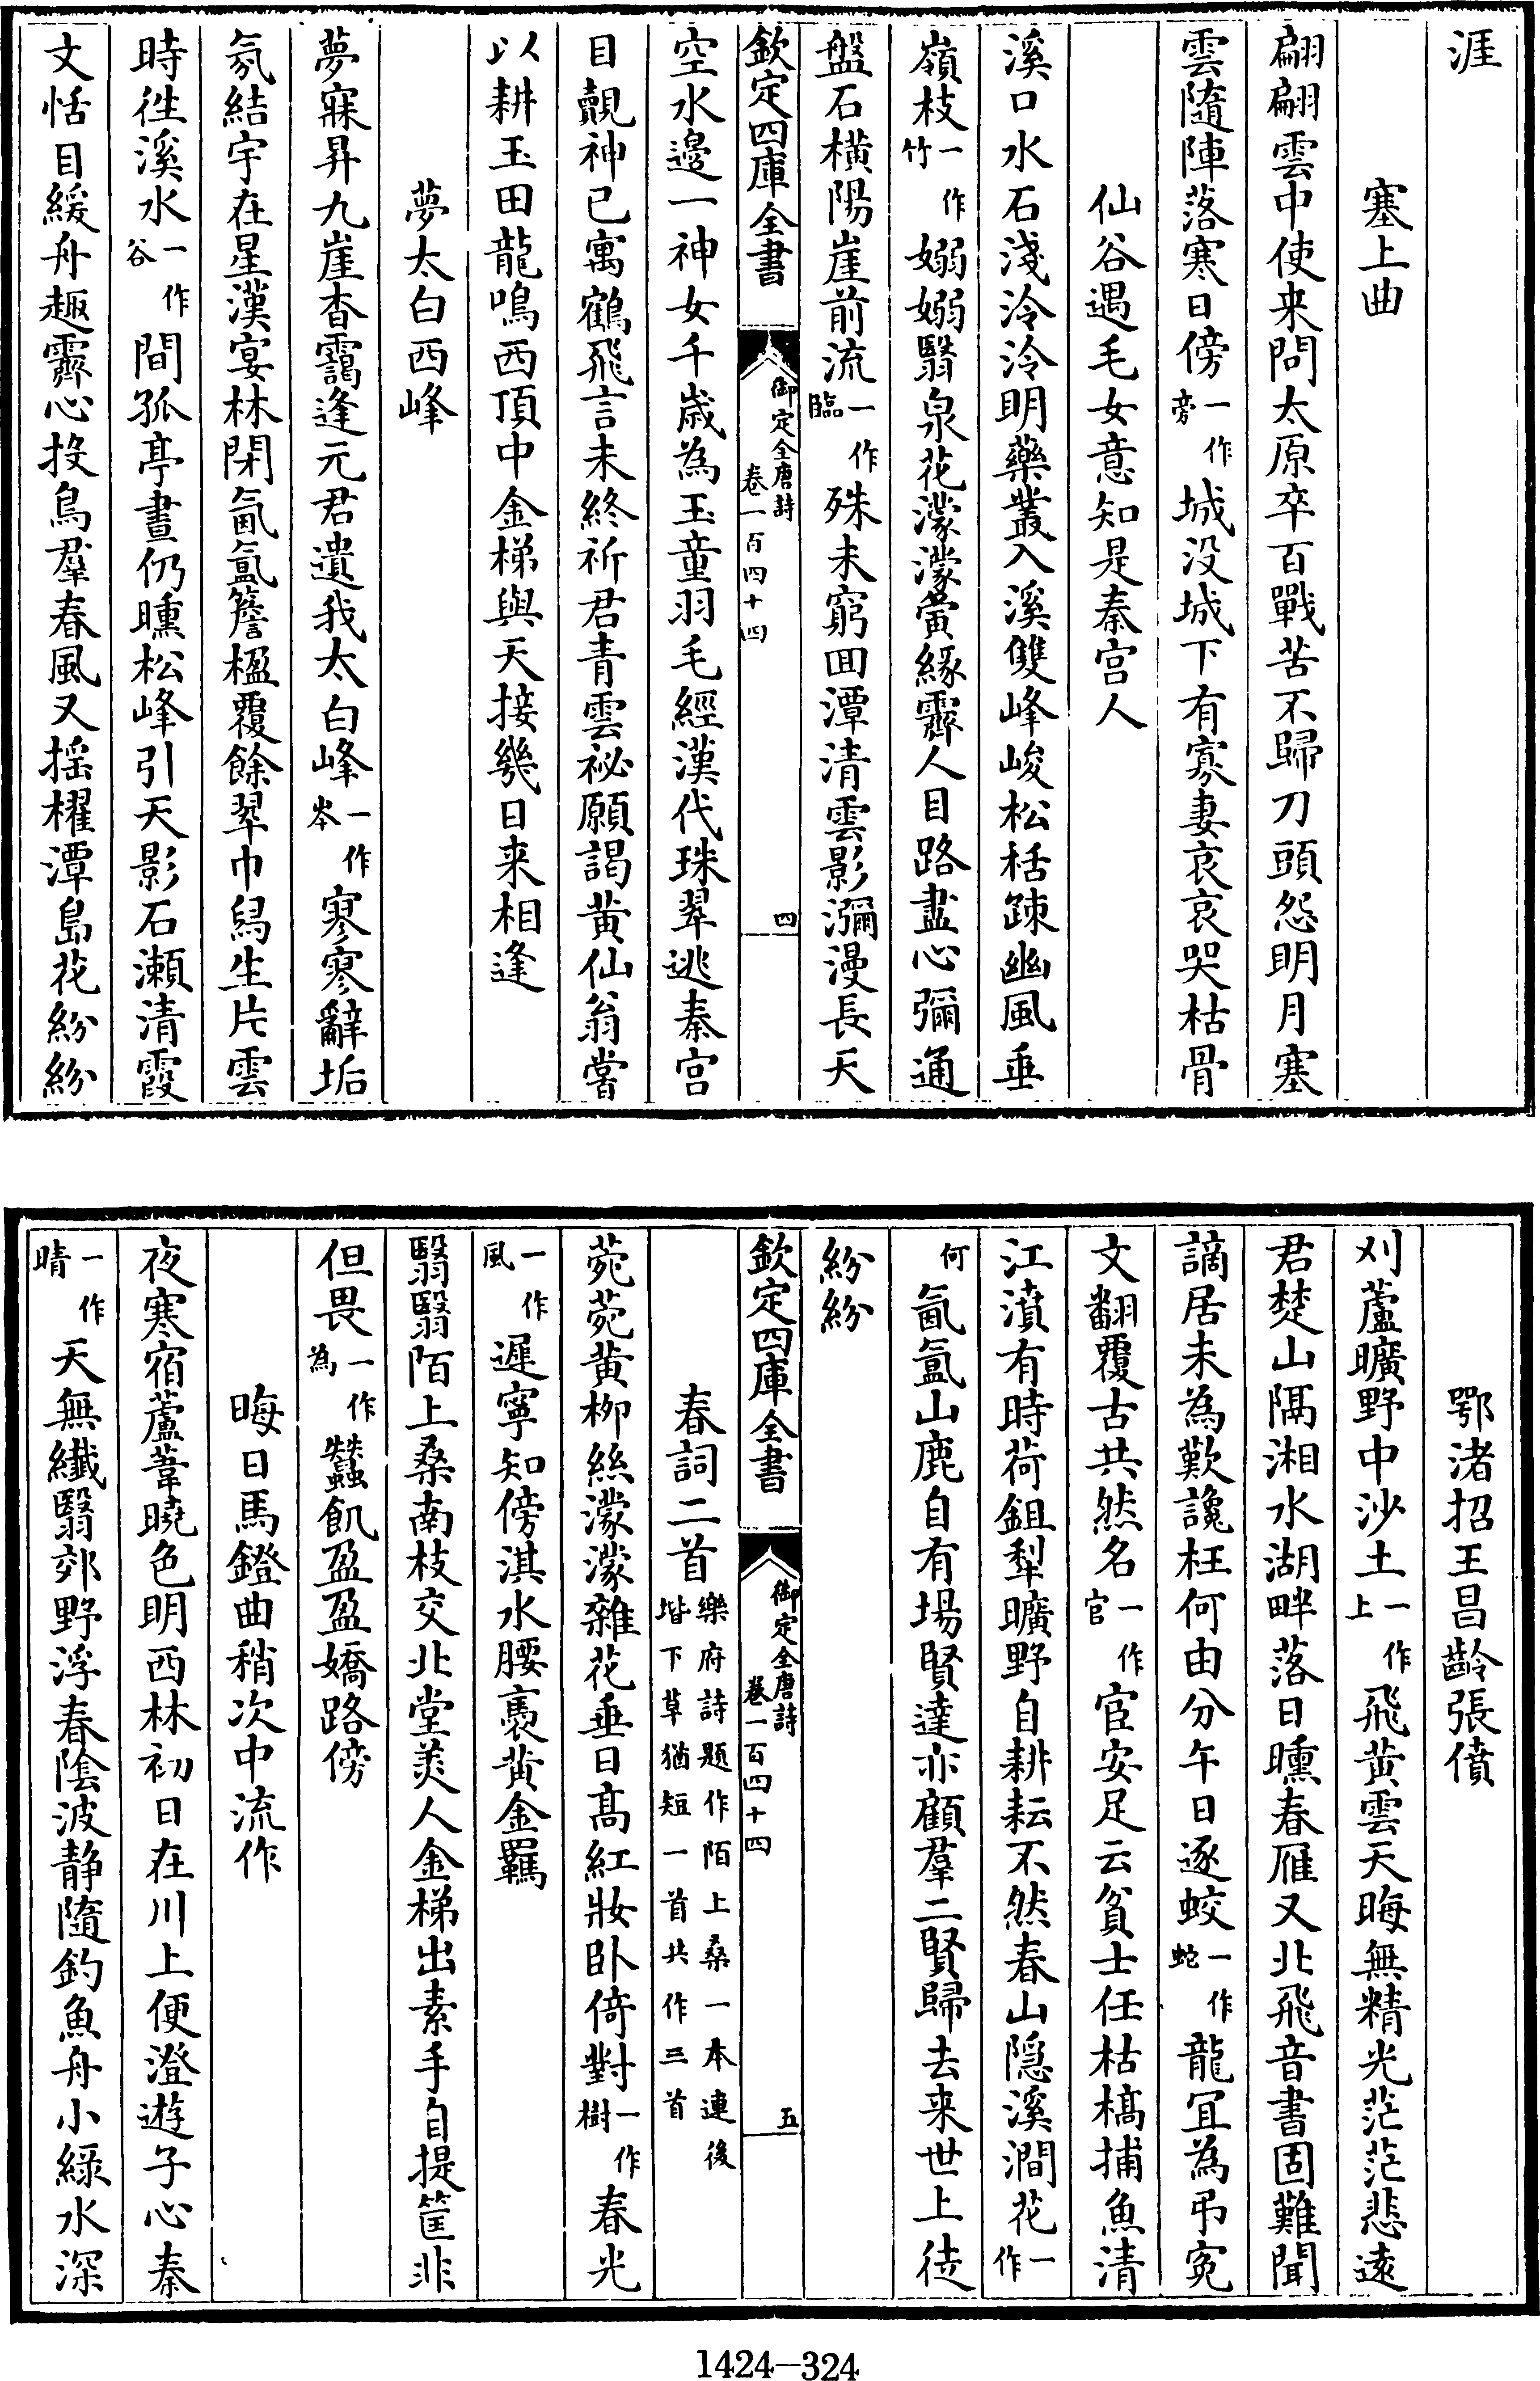 涯
塞上曲
翩翩雲中使来問太原卒百戰苦不歸刀頭怨明月塞
雲隨陣落寒日傍一作旁城没城下有寡妻哀哀哭枯骨
仙谷遇毛女意知是秦宫人
溪口水石淺泠泠明藥叢入溪雙峰峻松栝疎幽風垂
嶺枝一作竹嫋嫋翳泉花濛濛夤緣霽人目路盡心彌通
盤石横陽崖前流一作臨殊未窮回潭清雲影瀰漫長天
欽定四庫全書
御定全唐詩
卷一百四十四
四
空水邊一神女千歲為玉童羽毛經漢代珠翠逃秦宫
目覿神已寓鶴飛言未終祈君青雲祕願謁黄仙翁嘗
以耕玉田龍鳴西頂中金梯與天接幾日来相逢
夢太白西峰
夢寐昇九崖杳靄逢元君遺我太白峰一作岑寥寥辭垢
氛結宇在星漢宴林閉氤氲簷楹覆餘翠巾舄生片雲
時往溪水一作谷間孤亭晝仍曛松峰引天影石瀨清霞
文恬目緩舟趣霽心投鳥羣春風又摇櫂潭島花紛紛
鄂渚招王昌齡張僨
刈蘆曠野中沙土一作上飛黄雲天晦無精光茫茫悲逺
君楚山隔湘水湖畔落日曛春雁又北飛音書固難聞
謫居未為歎讒枉何由分午日逐蛟一作蛇龍宜為弔寃
文翻覆古共然名一作官宦安足云貧士任枯槁捕魚清
江濆有時荷鉏犁曠野自耕耘不然春山隱溪澗花一作
何氤氲山鹿自有場賢達亦顧羣二賢歸去来世上徒
紛紛
欽定四庫全書
御定全唐詩
卷一百四十四
五
春詞二首樂府詩題作陌上桑一本連後堦下草猶短一首共作三首
菀菀黄柳絲濛濛雜花垂日髙紅妝卧倚對一作樹春光
一作風遲寧知傍淇水腰褭黄金羈
翳翳陌上桑南枝交北堂美人金梯出素手自提筐非
但畏一作為蠶飢盈盈嬌路傍
晦日馬鐙曲稍次中流作
夜寒宿蘆葦曉色明西林初日在川上便澄遊子心秦
一作晴天無纎翳郊野浮春隂波静隨釣魚舟小緑水深
1424—324